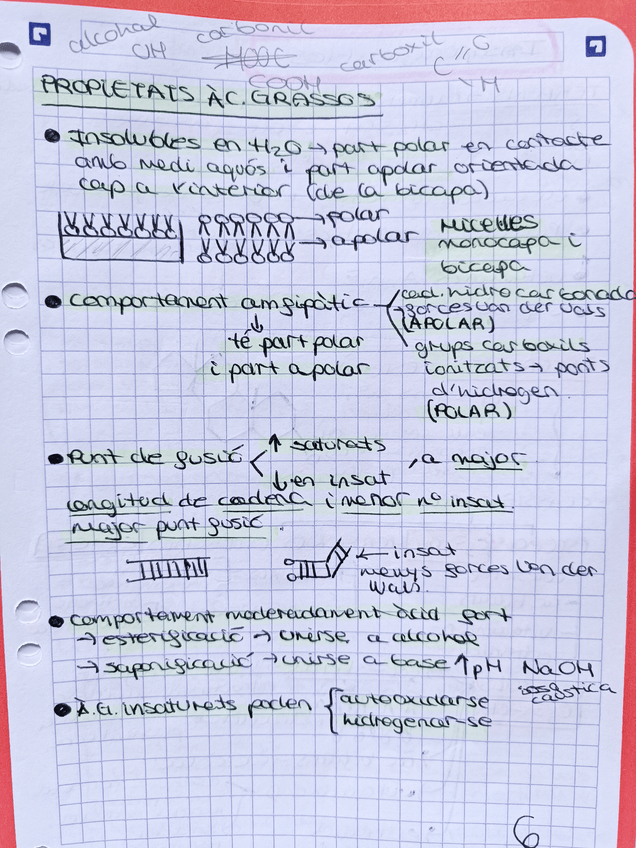 alcohol carbonil
OH HOOC carboxil C=O
COOH H
PROPIETATS ÀC. GRASSOS
• Insolubles en H2O → part polar en contacte
amb medi aquós i part apolar orientada
cap a l'interior (de la bicapa)
→ polar
→ apolar
Micel·les
monocapa i
bicapa
• Comportament amfipàtic
cad. hidrocarbonada
→ forces van der vals
(APOLAR)
↓
té part polar
i part apolar
grups carboxils
ionitzats → ponts
d'hidrogen.
(POLAR)
• Punt de fusió
↑ saturats
↓ en insat
, a major
longitud de cadena i menor nº insat
major punt fusió.
← insat
menys forces Van der
Wals.
• Comportament moderadament àcid fort
→ esterificació → unirse a alcohol
→ saponificació → unirse a base ↑pH NaOH
sosa càustica
• À.G. insaturats poden { autooxidarse
hidrogenar-se
6